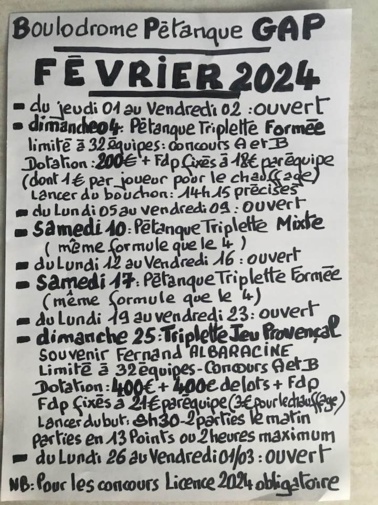 Boulodrome Pétanque GAP
FÉVRIER 2024
- du jeudi 01 au Vendredi 02 : ouvert
- dimanche 04: Pétanque Triplette Formée
limité à 32 équipes: concours A et B
Dotation: 200€ + Fdp fixés à 18€ par équipe
(dont 1€ par joueur pour le chauffage)
Lancer du bouchon: 14h15 précises
- du Lundi 05 au vendredi 09: ouvert
- Samedi 10: Pétanque Triplette Mixte
( même formule que le 4 )
- du Lundi 12 au Vendredi 16 : ouvert
- Samedi 17: Pétanque Triplette Formée
(même formule que le 4)
- du Lundi 19 au vendredi 23: ouvert
- dimanche 25: Triplette Jeu Provençal
Souvenir Fernand ALBARACINE
Limité à 32 équipes - Concours A et B
Dotation: 400€ + 400€ de lots + Fdp
Fdp fixés à 21€ par équipe (3€ pour le chauffage)
Lancer du but: 8h30 - 2 parties le matin
parties en 13 Points ou 2 heures maximum
- du Lundi 26 au Vendredi 01/03 : ouvert
NB: Pour les concours Licence 2024 obligatoire